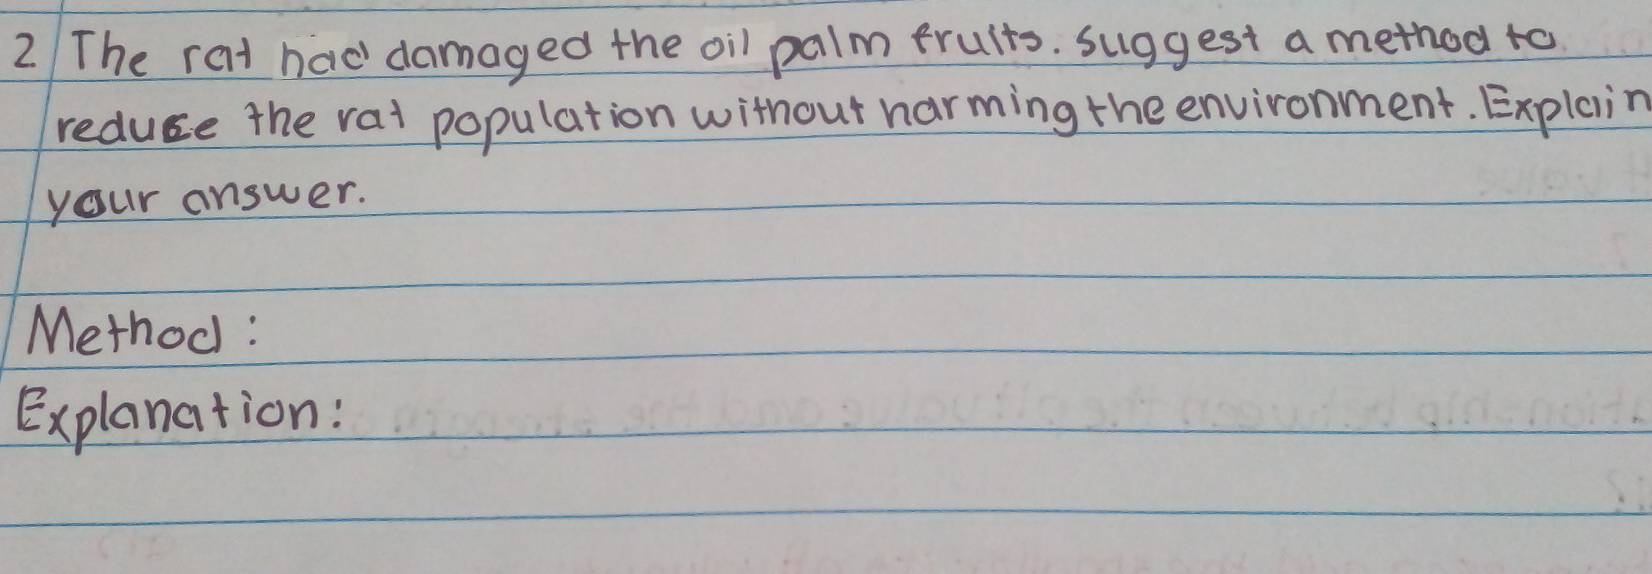 2 The rat had damaged the oil palm fruits. suggest a method to
reduce the rat population without harming the environment. Explain
your answer.
Method :
Explanation :